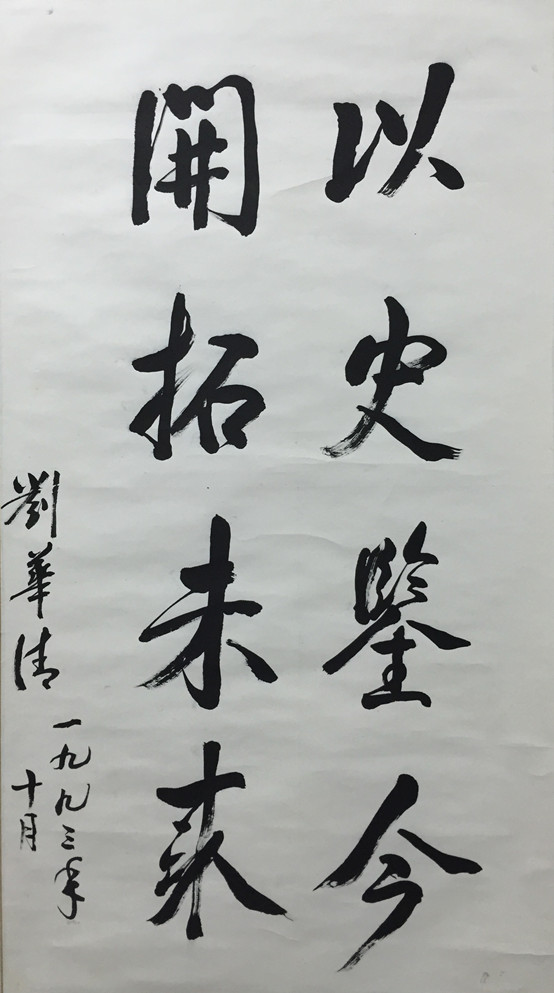 以史鋻今
開拓未来
劉華清
一九九三年
十月